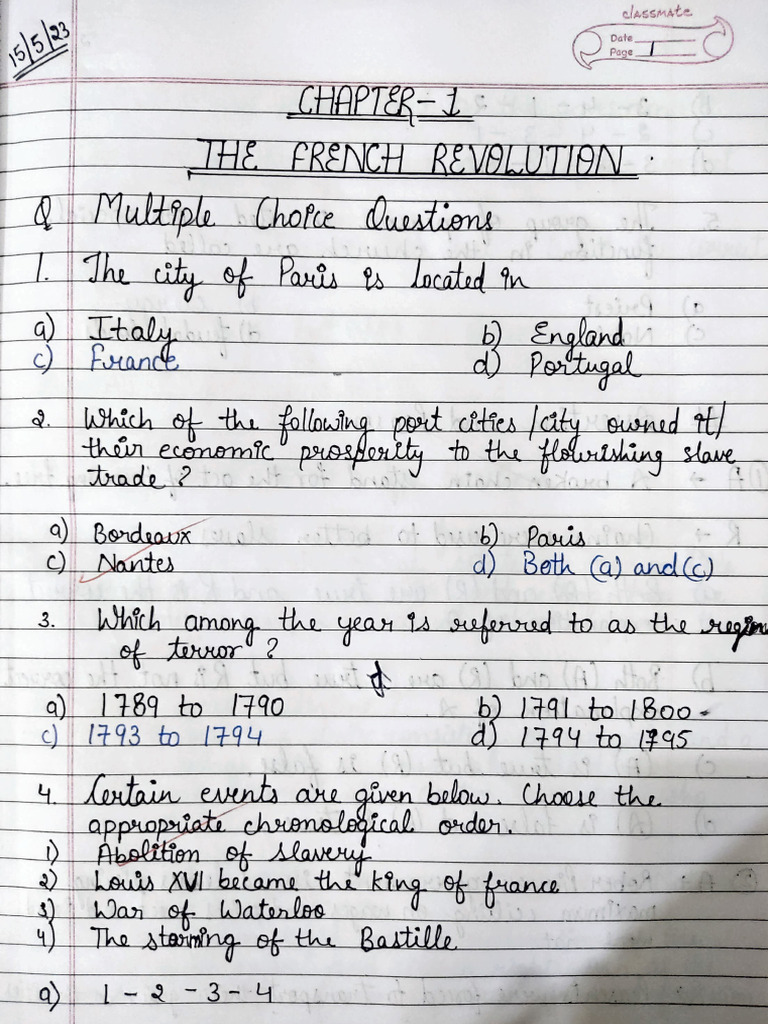 classmate
15/5/23
Date
Page 1
CHAPTER-1
THE FRENCH REVOLUTION.
Q Multiple Choice Questions
1. The city of Paris is located in
a) Italy b) England
c) France d) Portugal
2. Which of the following port cities /city owned it/
their economic prosperity to the flourishing slave
trade ?
a) Bordeaux b) Paris
c) Nantes d) Both (a) and (c)
3. Which among the year is referred to as the
of terror ?
a) 1789 to 1790 b) 1791 to 1800
c) 1793 to 1794 d) 1794 to 1795
4. Certain events are given below. Choose the
appropriate chronological order.
1) Abolition of slavery
2) Louis XVI became the king of france
3) War of Waterloo
4) The storming of the Bastille
a) 1 - 2 - 3 - 4